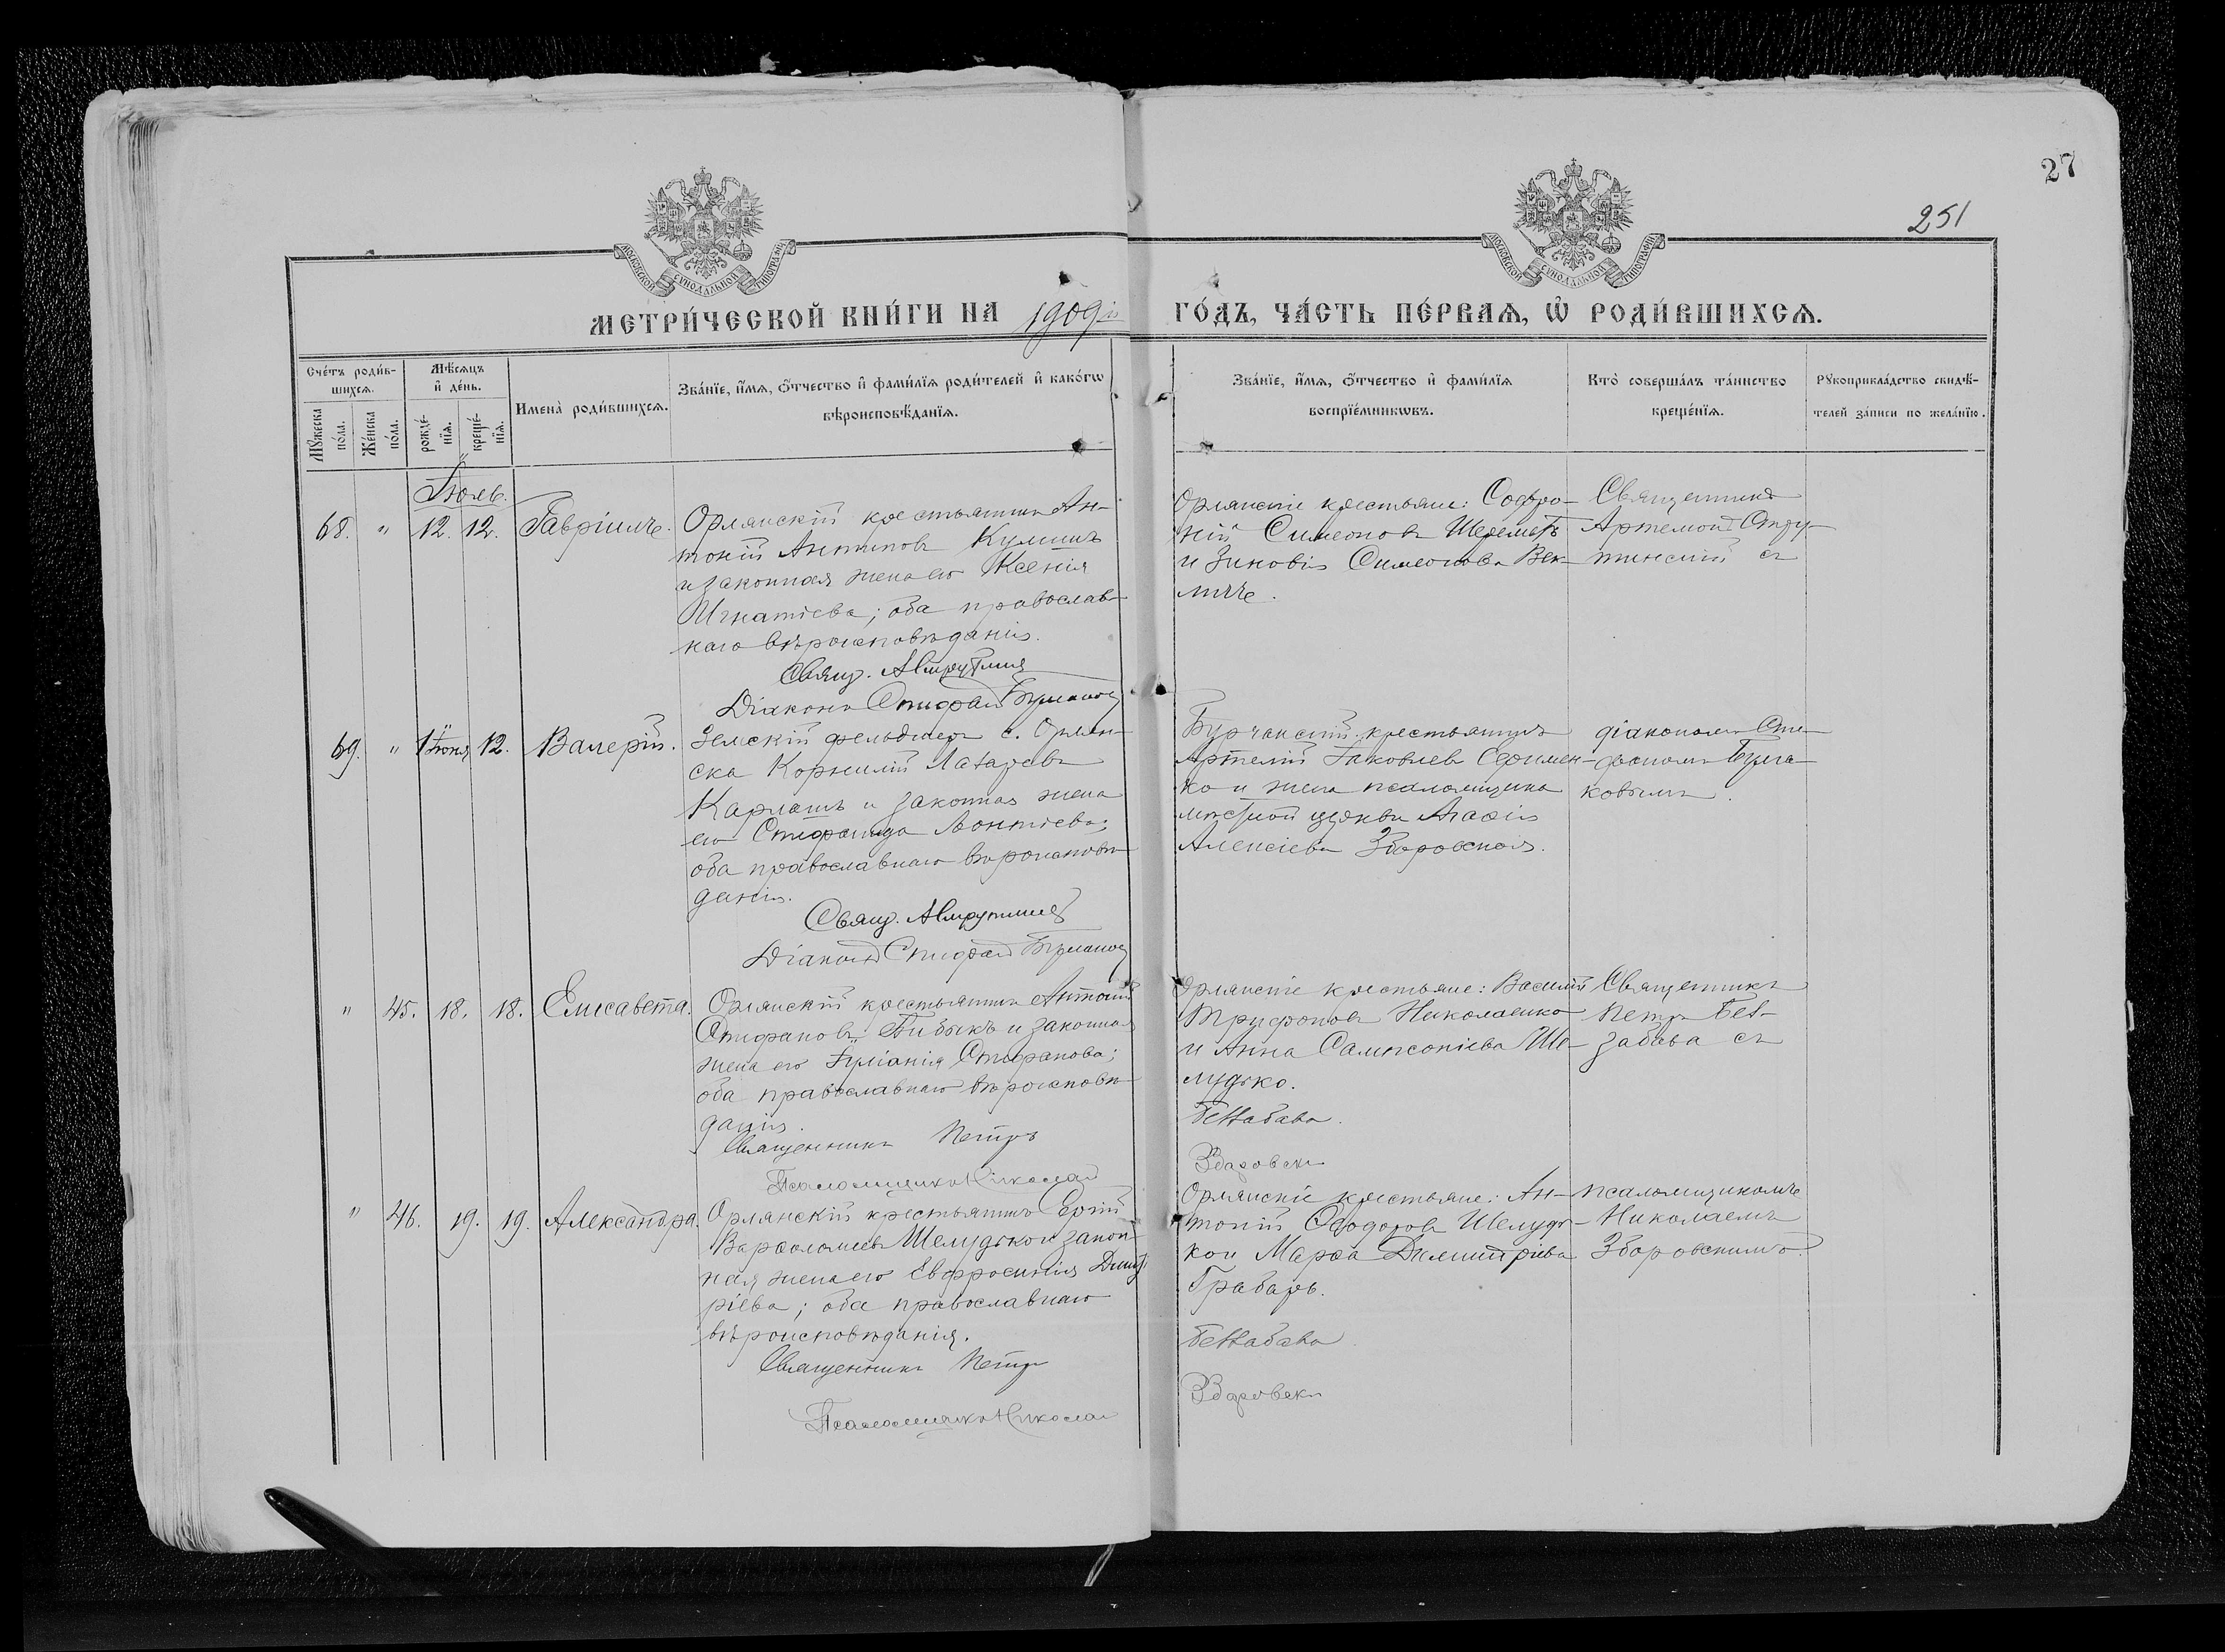 27
251
МОСКОВСКОЙ СУНОДАЛЬНОЙ ТИПОГРАФІИ
МОСКОВСКОЙ СУНОДАЛЬНОЙ ТИПОГРАФІИ
МЕТРИ́ЧЕСКОЙ КНИ́ГИ НА 1909й
ГО́ДЪ, ЧА́СТЬ ПЕ́РВАѦ, Ѽ РОДИ́ВШИХСѦ.
Сче́тъ роди́в-
шихсѧ.
Мѣ́сѧцъ
и҆ де́нь.
Мꙋ́жеска
по́ла.
Же́нска
по́ла.
рожде́-
нїѧ.
креще́-
нїѧ.
Имена̀ роди́вшихсѧ.
Зва́нїе, и҆́мѧ, ѻ҆́тчество и҆ фами́лїѧ роди́телей и҆ како́гѡ
вѣроисповѣ́данїѧ.
Зва́нїе, и҆́мѧ, ѻ҆́тчество и҆ фами́лїѧ
воспрїе́мникѡвъ.
Кто̀ соверша́лъ та́инство
креще́нїѧ.
Рꙋкоприкла́дство свидѣ́-
телей за́писи по жела́нїю.
Іюль.
68. " 12. 12. Гавріилъ.
Орлянскій крестьянинъ Ан-
тоній Антиповъ Кулишъ
и законная жена его Ксенія
Игнатіева; оба православ-
наго вѣроисповѣданія.
Свящ.
Діаконъ Епифан Бурлаков
Орлянскіе крестьяне: Софро-
ній Симеоновъ Шереметъ
и Зиновія Симеонова Век-
личъ.
Священникъ
Артемонъ Стру-
тинскій съ
69. " 1 Іюня 12. Валерій.
Земскій фельдшеръ с. Орлян-
ска Корнилій Лазаревъ
Карлашъ и законная жена
его Степанида Леонтіева;
оба православнаго вѣроисповѣ-
данія.
Свящ.
Діаконъ Епифан Бурлаков
Бурчанскій крестьянинъ
Артемій Іаковлевъ Ефимен-
ко и жена псаломщика
мѣстной церкви Агафія
Алексіева Зборовская.
діакономъ Епи-
фаномъ Бурла-
ковымъ.
" 45. 18. 18. Елисавета.
Орлянскій крестьянинъ Антоній
Стефановъ Бибыкъ и законная
жена его Іуліанія Стефанова;
оба православнаго вѣроисповѣ-
данія.
Священникъ Петръ
Псаломщикъ Николай
Орлянскіе крестьяне: Василій
Трифоновъ Николаенко
и Анна Сампсоніева Ше-
лудько.
Беззабава.
Зборовски
Священникъ
Петръ Без-
забава съ
" 46. 19. 19. Александра.
Орлянскій крестьянинъ Сергій
Варфоломеевъ Шелудько и закон-
ная жена его Евфросинія Димит-
ріева; оба православнаго
вѣроисповѣданія.
Священникъ Петръ
Псаломщикъ Николай
Орлянскіе крестьяне: Ан-
тоній Ѳеодоровъ Шелудь-
ко и Марѳа Димитріева
Грабаръ.
Беззабава
Зборовски
псаломщикомъ
Николаемъ
Зборовскимъ.